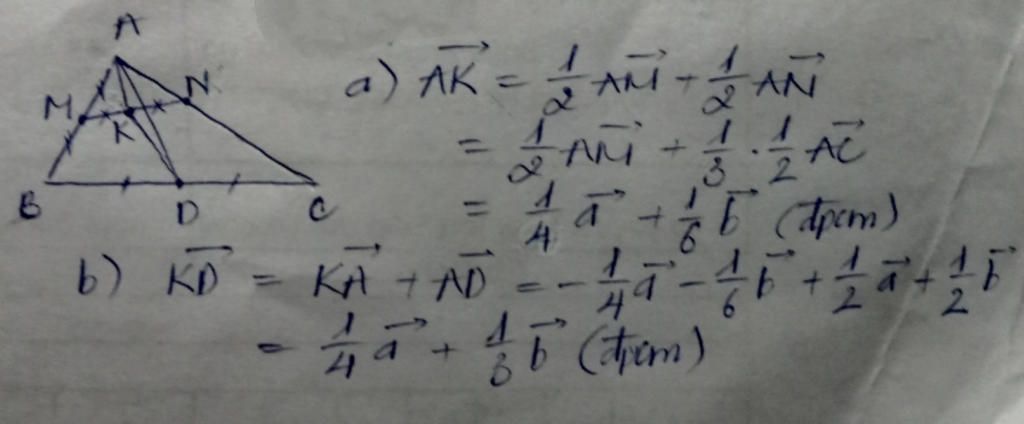 A
M
N
K
B
D
C
a) AK⃗ = 1/2 AM⃗ + 1/2 AN⃗
= 1/2 AM⃗ + 1/3 · 1/2 AC⃗
= 1/4 a⃗ + 1/6 b⃗ (đpcm)
b) KD⃗ = KA⃗ + AD⃗ = -1/4 a⃗ - 1/6 b⃗ + 1/2 a⃗ + 1/2 b⃗
= 1/4 a⃗ + 1/3 b⃗ (đpcm)